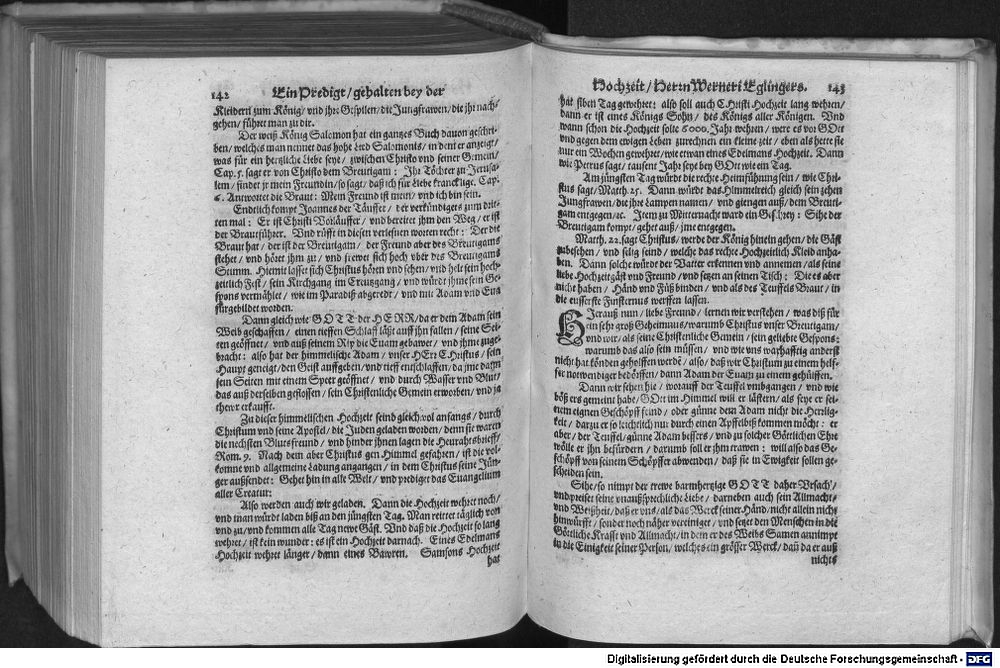 142 Ein Predigt / gehalten bey der
Kleidern zum König / vnd jhre Gespilen / die Jungfrawen / die jhr nach-
gehen / führet man zu dir.
Der weiß König Salomon hat ein gantzes Buch dauon geschri-
ben / welches man nennet das hohe Lied Salomonis / in dem er anzeigt /
was für ein hertzliche Liebe seye / zwischen Christo vnd seiner Gemein /
Cap. 5. sagt er von Christo dem Breutigam : Ihr Töchter zu Jerusa-
lem / findet jr mein Freundin / so sagt / daß ich für Liebe kranck lige. Cap.
6. Antwortet die Braut : Mein Freund ist mein / vnd ich bin sein.
Endtlich kompt Joannes der Täuffer / der verkündigets zum drit-
ten mal : Er ist Christi Vorläuffer / vnd bereitet jhm den Weg / er ist
der Brautführer. Vnd rüfft in diesen verlesnen worten recht : Der die
Braut hat / der ist der Breutigam / der Freund aber des Breutigams
stehet / vnd höret jhm zu / vnd frewet sich hoch vber des Breutigams
Stimm. Hiemit lasset sich Christus hören vnd sehen / vnd helt sein hoch-
zeitlich Fest / sein Kirchgang im Creutzgang / vnd würdt jhme sein Ge-
spons vermählet / wie im Paradiß abgeredt / vnd mit Adam vnd Eua
fürgebildet worden.
Dann gleich wie GOTT der HERR / da er dem Adam sein
Weib geschaffen / einen tieffen Schlaff läßt auff jhn fallen / seine Sei-
ten geöffnet / vnd auß seinem Rip die Euam gebawet / vnd jhme zuge-
bracht : also hat der himmelische Adam / vnser HErr Christus / sein
Haupt geneigt / den Geist auffgeben / vnd tieff entschlaffen / da jme dann
sein Seiten mit einem Speer geöffnet / vnd durch Wasser vnd Blut /
das auß derselben geflossen / sein Christenliche Gemein erworben / vnd ja
thewr erkaufft.
Zu dieser himmelischen Hochzeit seind gleichwol anfangs / durch
Christum vnd seine Apostel / die Juden geladen worden / denn sie waren
die nechsten Blutsfreund / vnd hinder jhnen lagen die Heurahtsbrieff /
Rom. 9. Nach dem aber Christus gen Himmel gefahren / ist die vol-
komne vnd allgemeine Ladung angangen / in dem Christus seine Jün-
ger außsendet : Gehet hin in alle Welt / vnd prediget das Euangelium
aller Creatur:
Also werden auch wir geladen. Dann die Hochzeit wehret noch /
vnd man würdt laden biß an den jüngsten Tag. Man reittet täglich von
vnd zu / vnd kommen alle Tag newe Gäst. Vnd daß die Hochzeit so lang
wehret / ist kein wunder : es ist ein Hochzeit darnach. Eines Edelmans
Hochzeit wehret länger / denn eines Bawren. Samsons Hochzeit
hat
Hochzeit / Herrn Werneri Eglingers. 143
hat siben Tag gewehret : also soll auch C. Christi Hochzeit lang wehren /
dann er ist eines Königs Sohn / des Königs aller Königen. Vnd
wann schon die Hochzeit solte 6000. Jahr wehren / were es vor GOtt
vnd gegen dem ewigen Leben zurechnen ein kleine zeit / eben als hette sie
nur ein Wochen gewehret / wie etwan eines Edelmans Hochzeit. Dann
wie Petrus sagt / tausent Jahr seye bey GOtt wie ein Tag.
Am jüngsten Tag würdt die rechte Heimführung sein / wie Chri-
stus sagt / Matth. 25. Dann würdt das Himmelreich gleich sein zehen
Jungfrawen / die jhre Lampen namen / vnd giengen auß / dem Breuti-
gam entgegen / etc. Item zu Mitternacht ward ein Geschrey : Sihe der
Breutigam kompt / gehet auß / jme entgegen.
Matth. 22. sagt Christus / werde der König hinein gehen / die Gäst
zubesehen / vnd selig seind / welche das rechte Hochzeitlich Kleid anha-
ben. Dann solche würdt der Vatter erkennen vnd annemen / als seine
liebe Hochzeitgäst vnd Freund / vnd setzen an seinen Tisch : Die es aber
nicht haben / Händ vnd Füß binden / vnd als des Teuffels Braut / in
die eusserste Finsternus werffen lassen.
HIerauß nun / liebe Freund / lernen wir verstehen / was diß für
ein sehr groß Geheimnus / warumb Christus vnser Breutigam /
vnd wir / als seine Christenliche Gemein / sein geliebte Gespons:
warumb das also sein müssen / vnd wie vns warhafftig anderst
nicht hat können geholffen werdē / also / daß wir Christum zu einem helf-
fer notwendiger bedörffen / dann Adam der Euam zu einem gehülffen.
Dann wir sehen hie / worauff der Teuffel vmbgangen / vnd wie
böß ers gemeint habe / GOtt im Himmel will er lästern / als seye er sei-
nem eignen Geschöpff feind / oder günne dem Adam nicht die Herrlig-
keit / darzu er so leichtlich nur durch einen Apffelbiß kommen möcht : er
aber / der Teuffel / günne Adam bessers / vnd zu solcher Göttlichen Ehre
wölle er jhn befürdern / darumb soll er jhm trawen : will also das Ge-
schöpff von seinem Schöpffer abwenden / daß sie in Ewigkeit sollen ge-
scheiden sein.
Sihe / so nimpt der trewe barmhertzige GOTT daher Vrsach /
vnd preiset seine vnaußsprechliche Liebe / darneben auch sein Allmacht /
vnd Weißheit / daß er vns / als das Werck seiner Händ / nicht allein nicht
hinwürfft / sonder noch näher vereiniget / vnd setzet den Menschen in die
Göttliche Krafft vnd Allmacht / in dem er des Weibs Samen annimpt
in die Einigkeit seiner Person / welches ein grösser Werck / dañ da er auß
nichts
Digitalisierung gefördert durch die Deutsche Forschungsgemeinschaft - DFG